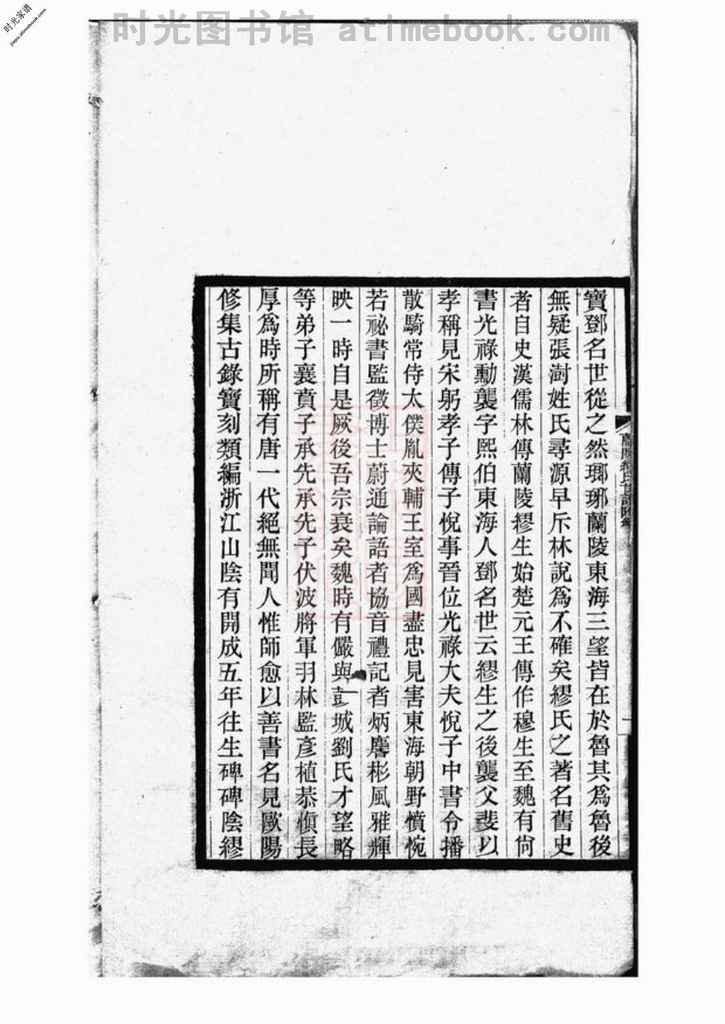 时光图书馆 atimebook.com
时光家谱
寶鄧名世從之然瑯琊蘭陵東海三望皆在於魯其爲魯後
無疑張澍姓氏尋源早斥林說爲不確矣繆氏之著名舊史
者自史漢儒林傳蘭陵繆生始楚元王傳作穆生至魏有尙
書光祿勳襲字熙伯東海人鄧名世云繆生之後襲父斐以
孝稱見宋躬孝子傳子悅事晉位光祿大夫悅子中書令播
散騎常侍太僕胤夾輔王室爲國盡忠見害東海朝野憤惋
若祕書監徵博士蔚通論語者協音禮記者炳麐彬風雅輝
映一時自是厥後吾宗衰矣魏時有儼與彭城劉氏才望略
等弟子襄賁子承先承先子伏波將軍羽林監彥植恭愼長
厚爲時所稱有唐一代絕無聞人惟師愈以善書名見歐陽
修集古錄寶刻類編浙江山陰有開成五年往生碑碑陰繆